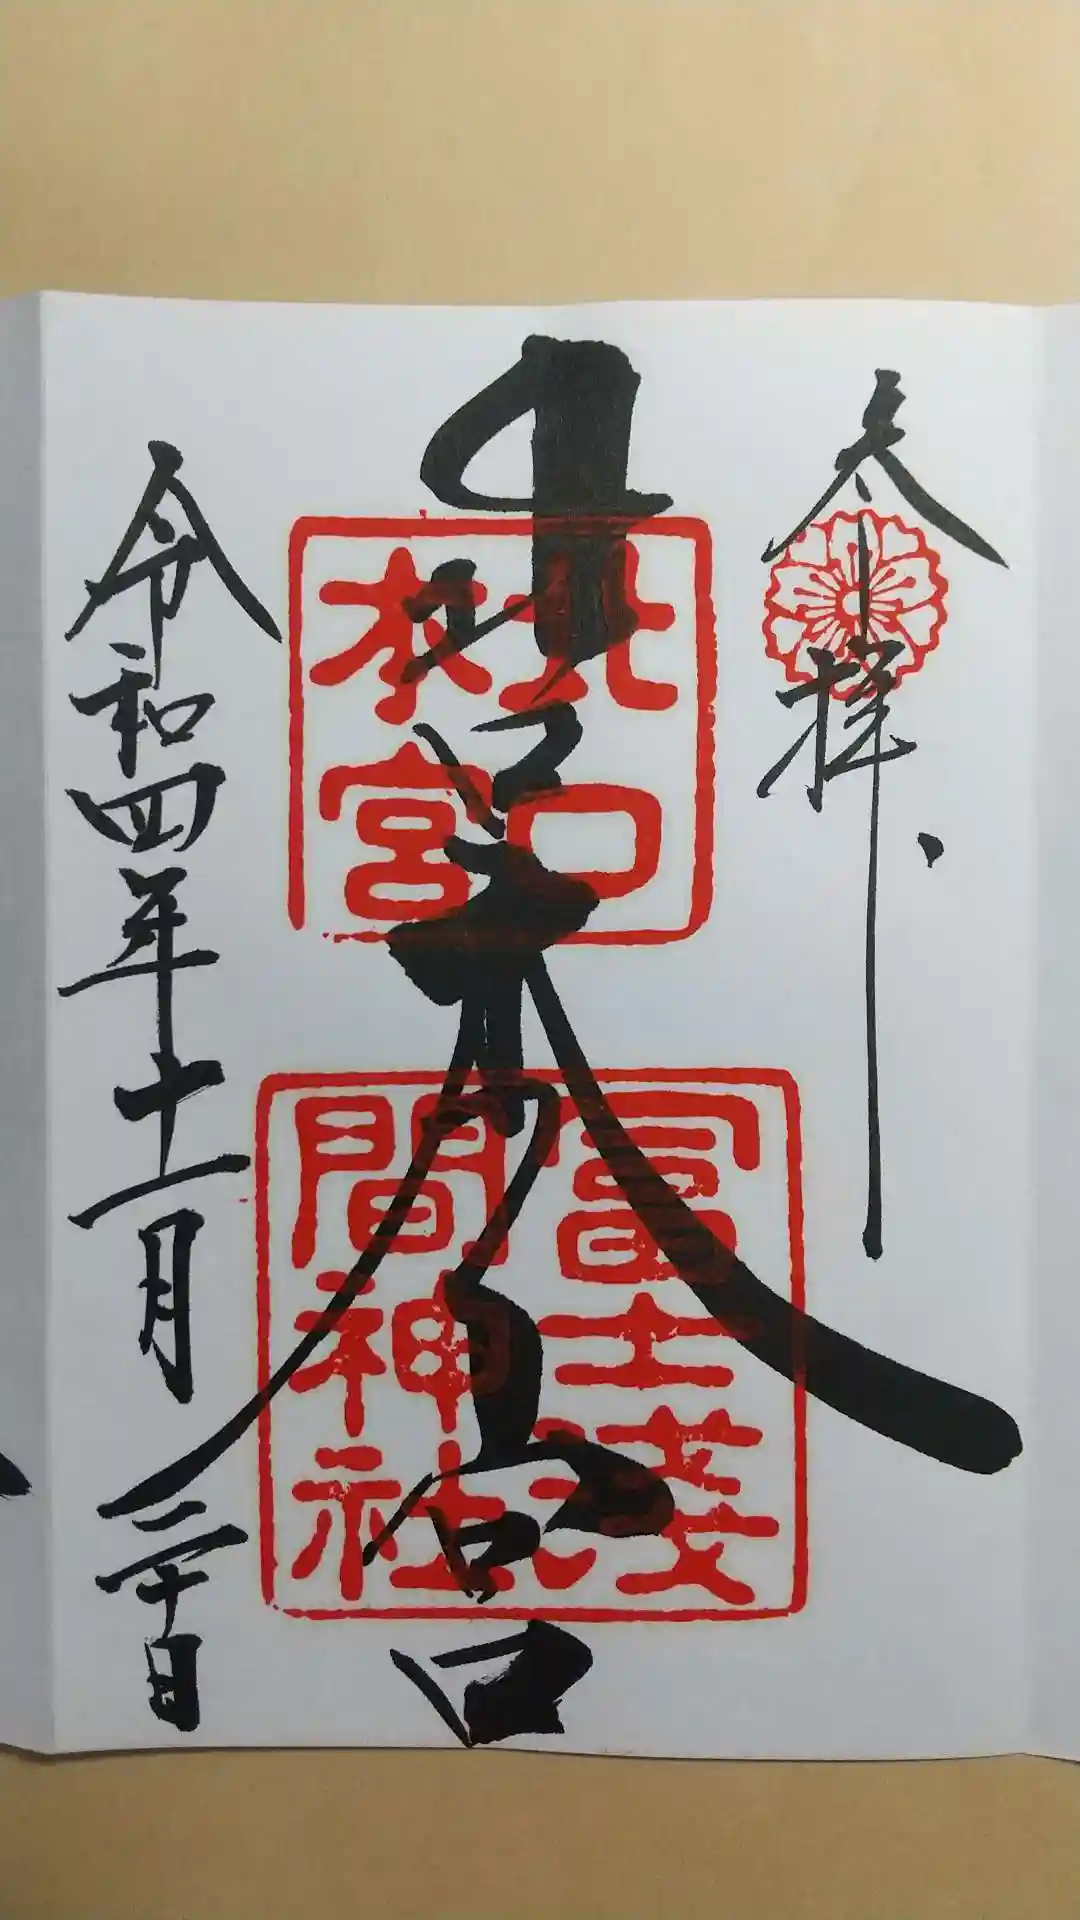 奉拝
北口
本宮
北口本宮
冨士浅
間神社
令和四年十一月三十日